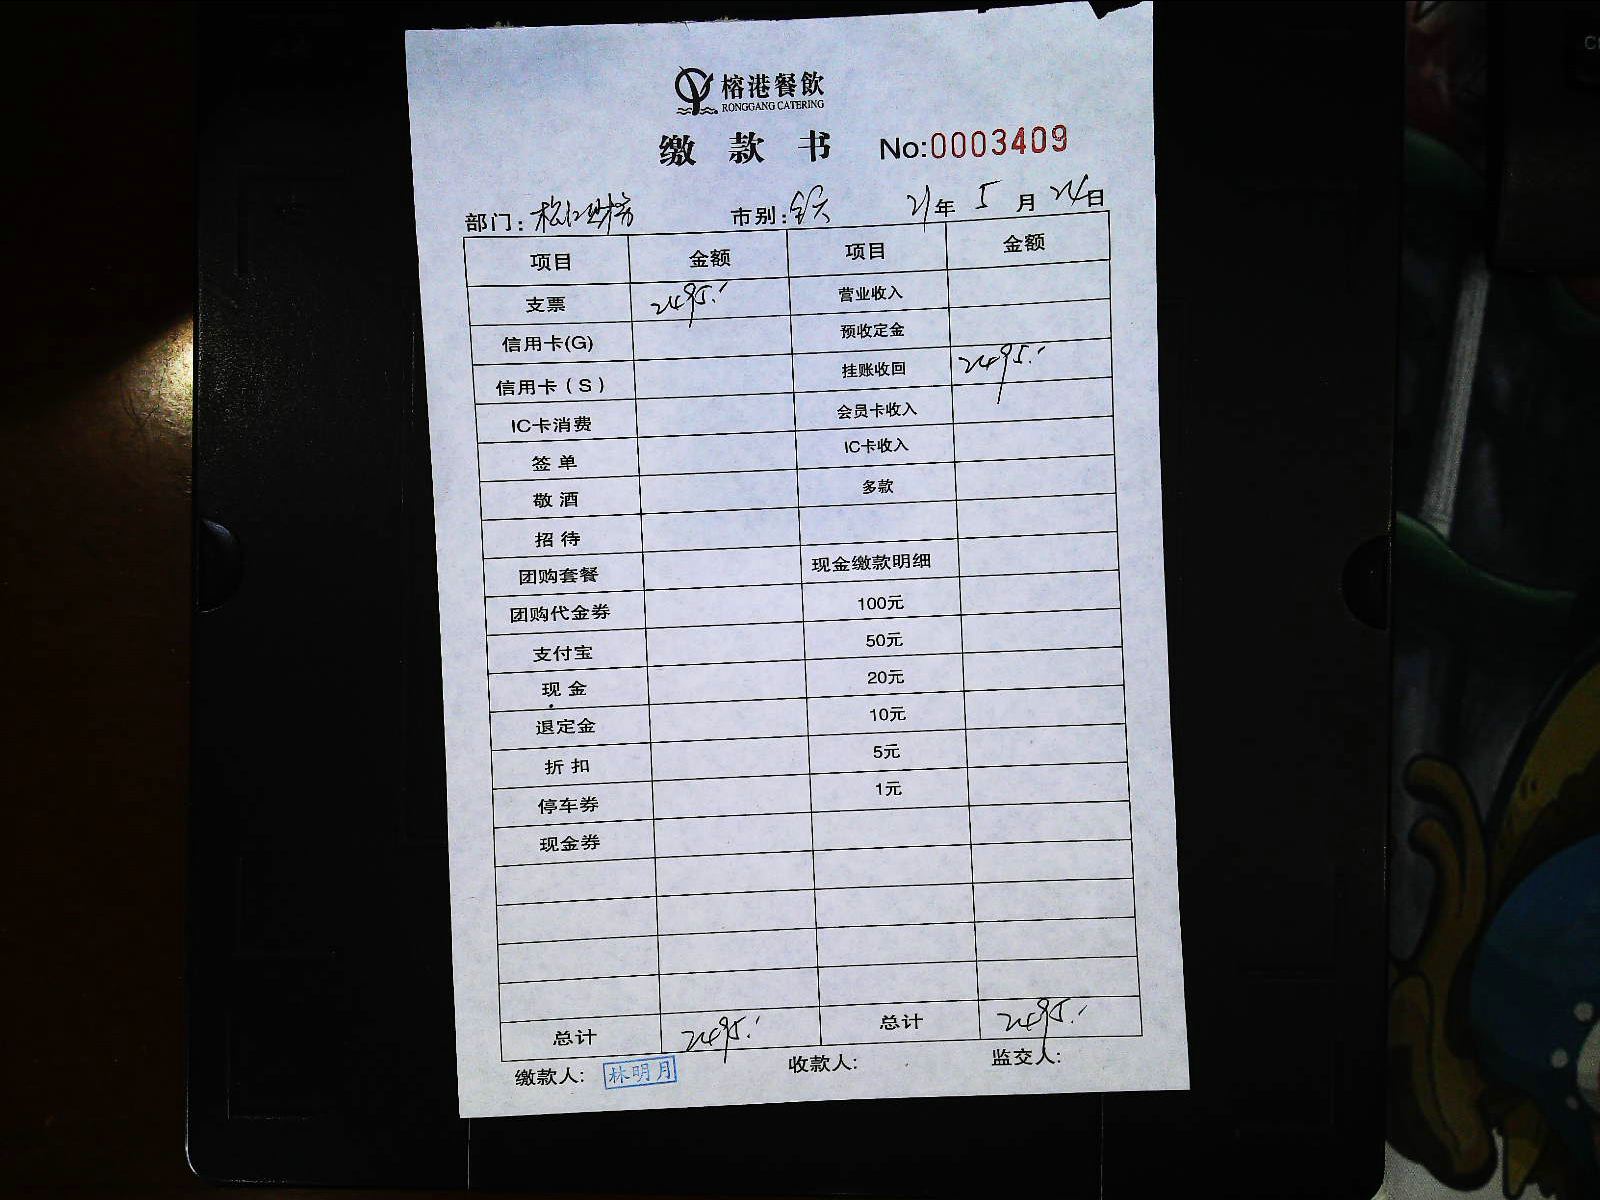 榕港餐飲
RONGGANG CATERING
缴款书 No:0003409
部门: 市别:全天 21年5月24日
项目 金额 项目 金额
支票 2495.- 营业收入
信用卡(G) 预收定金
信用卡（S） 挂账收回 2495.-
IC卡消费 会员卡收入
签单 IC卡收入
敬酒 多款
招待
团购套餐 现金缴款明细
团购代金券 100元
支付宝 50元
现金 20元
退定金 10元
折扣 5元
停车券 1元
现金券
总计 2495.- 总计 2495.-
缴款人: 林明月 收款人: 监交人: